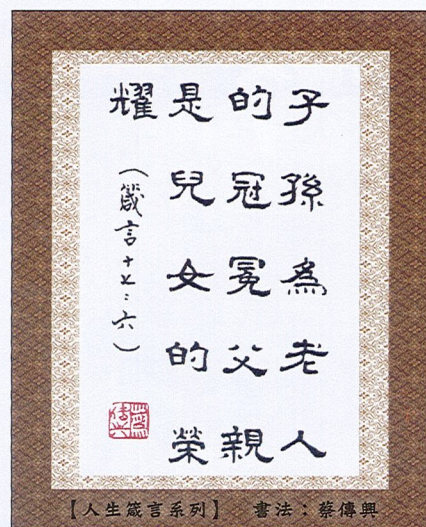 子孫為老人
的冠冕父親
是兒女的榮
耀
（箴言十七：六）
【人生箴言系列】　書法：蔡傳興